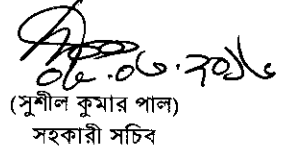 ০৫.০৬.২০১৬
(সুশীল কুমার পাল)
সহকারী সচিব